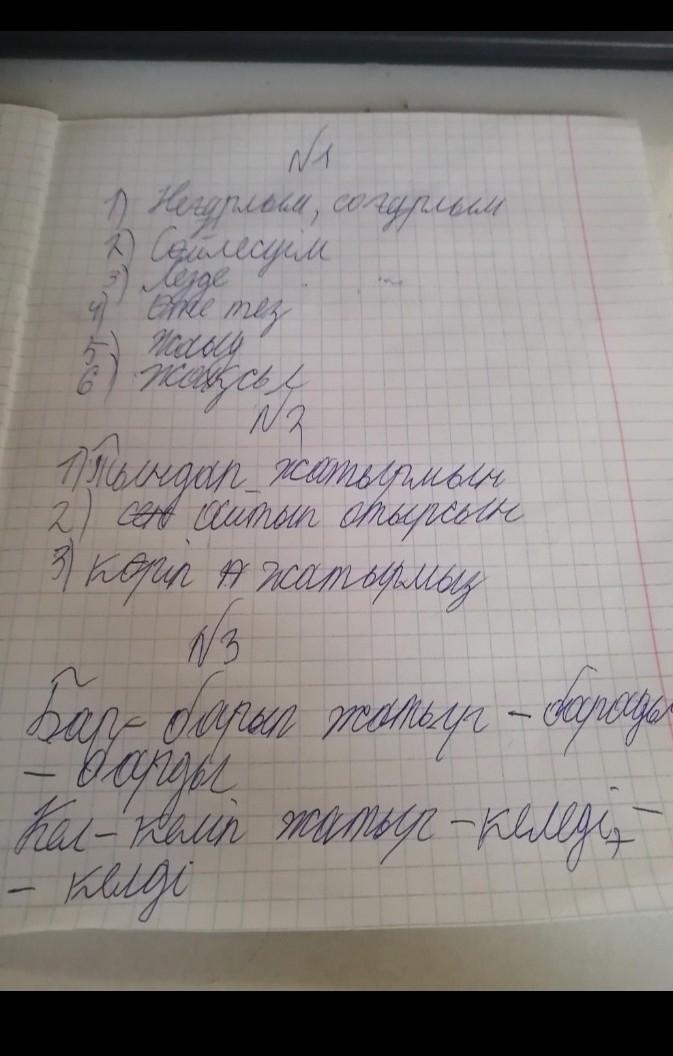 N1
1) Неғұрлым, соғұрлым
2) Сөйлесуім
3) Лезде
4) Өте тез
5) Жауы
6) жақсы
N2
1) Тыңдап жатырмын
2) айтып отырсын
3) көріп жатырмыз
N3
Бар - барып жатыр - барады
- барды
Кел - келіп жатыр - келеді, -
- келді